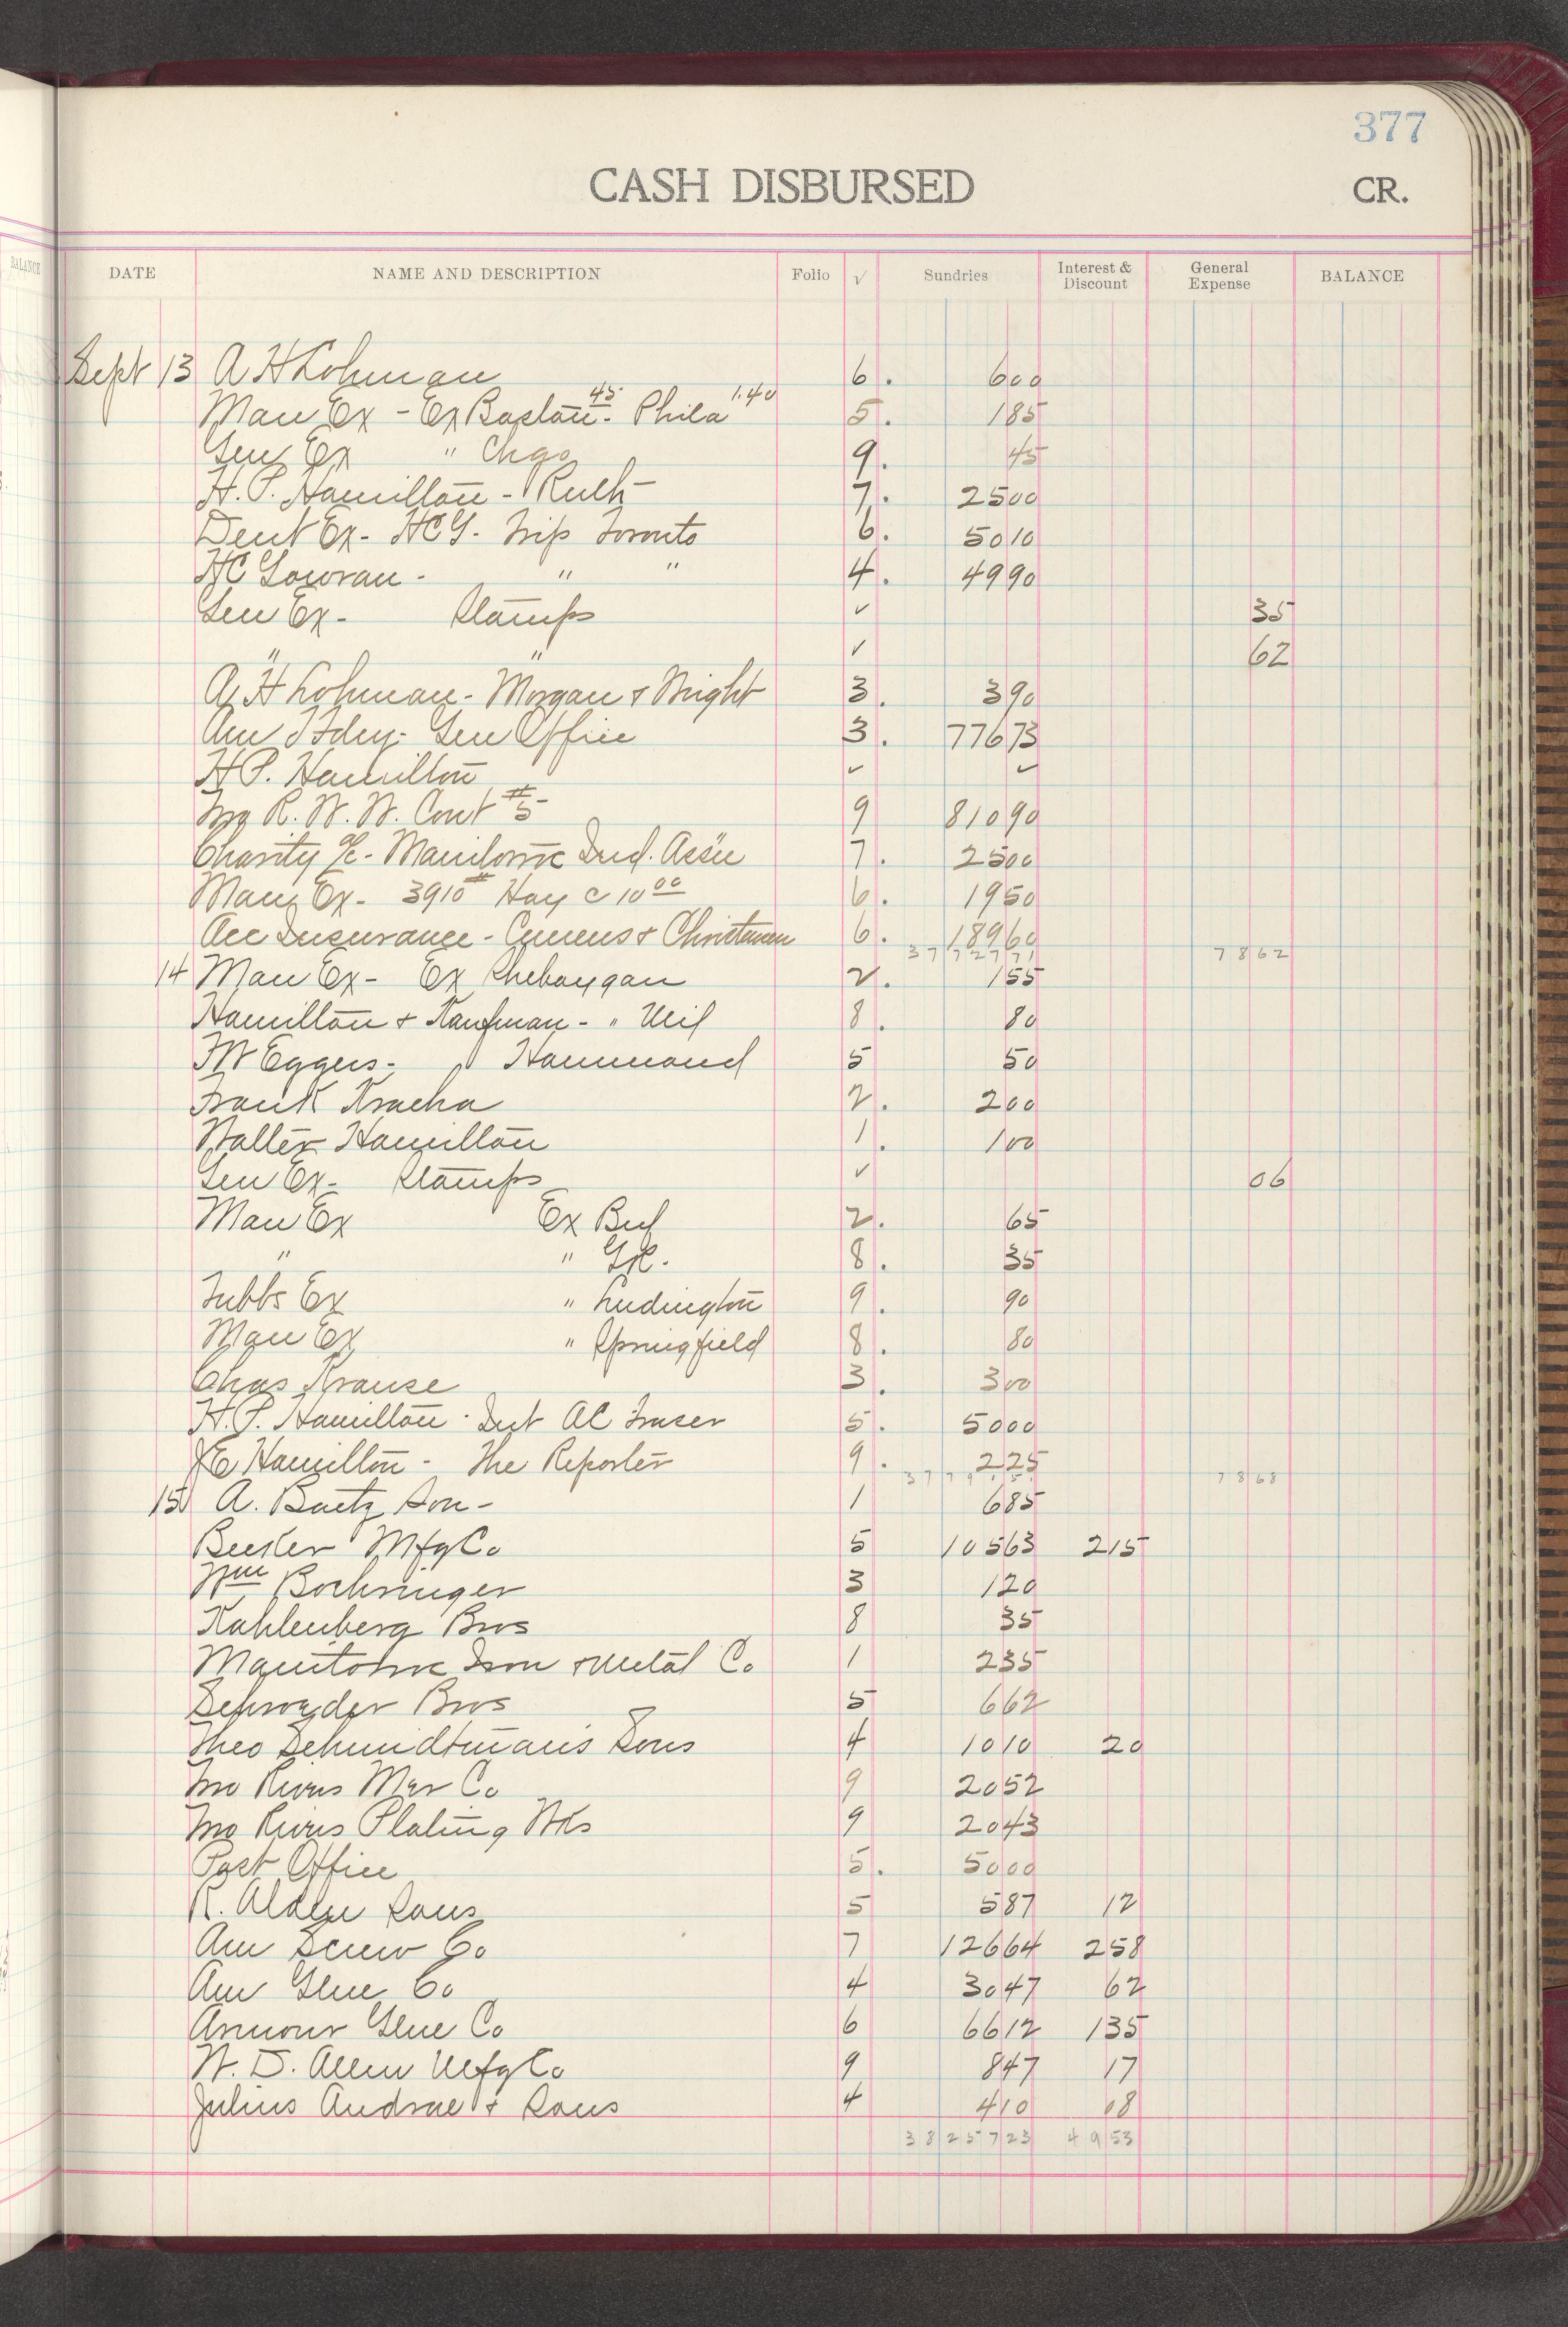 377
CASH DISBURSED CR.
BALANCE DATE NAME AND DESCRIPTION Folio √ Sundries Interest & Discount General Expense BALANCE
Sept 13 A H Lohman 6. 600
Man Ex - Ex Boston 45 - Phila 1.40 5. 185
Gen Ex " Chgo 9. 45
H.P. Hamilton - Ruth 7. 2500
Dent Ex - HCG. Trip Toronto 6. 5010
HC Gowran - " " 4. 4990
Gen Ex - Stamps ✓ 35
" " ✓ 62
A H Lohman - Morgan & Wright 3. 390
Am Fdry - Gen Office 3. 77673
H P. Hamilton ✓ ✓
R. W. W. Cont #5 9 81090
Charity a/c - Manitowoc Ind. Ass'n 7. 2500
Man Ex - 3910# Hay c 10 00 6. 1950
Acc Insurance - & Christensen 6. 18960
37727 71 7862
14 Man Ex - Ex Sheboygan 2. 155
Hamilton & Kaufman - " Mil 8. 80
Eggers - Hammond 5 50
Frank Kracha 2. 200
Walter Hamilton 1. 100
Gen Ex - Stamps ✓ 06
Man Ex Ex Buf 2. 65
" " GR. 8. 35
Tubbs Ex " Ludington 9. 90
Man Ex " Springfield 8. 80
Chas Krause 3. 300
H.P. Hamilton - Int AC Fraser 5. 5000
Hamilton - The Reporter 9. 225
7868
15 A. Baetz Son - 1 685
Mfg Co 5 10563 215
Wm Boehringer 3 120
Kahlenberg Bros 8 35
Manitowoc Iron & Metal Co 1 235
Schroeder Bros 5 662
Theo Schmidtman's Sons 4 1010 20
Two Rivers Mer Co 9 2052
Two Rivers Plating Wks 9 2043
Post Office 5. 5000
R. Alden Sons 5 587 12
Am Screw Co 7 12664 258
Am Glue Co 4 3047 62
Armour Glue Co 6 6612 135
W. D. Allen Mfg Co 9 847 17
Julius Andrae & Sons 4 410 08
3825723 4953